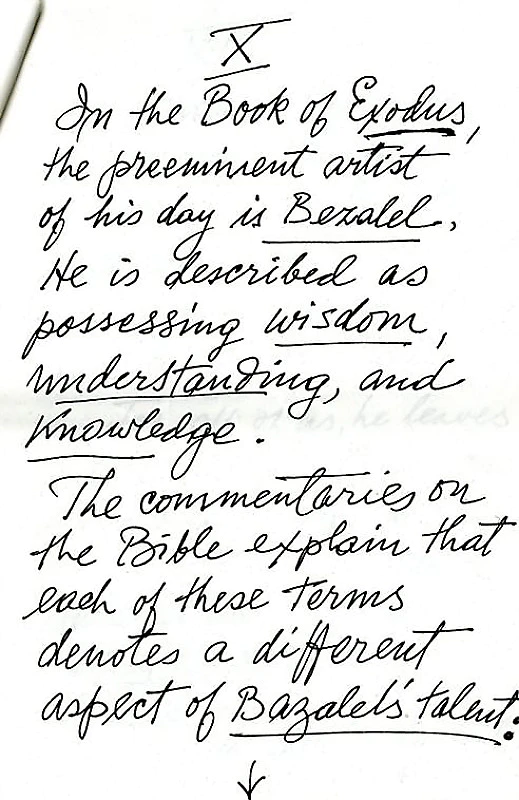 X
In the Book of Exodus,
the preeminent artist
of his day is Bezalel.
He is described as
possessing wisdom,
understanding, and
knowledge.
The commentaries on
the Bible explain that
each of these terms
denotes a different
aspect of Bazalel's talent.
↓